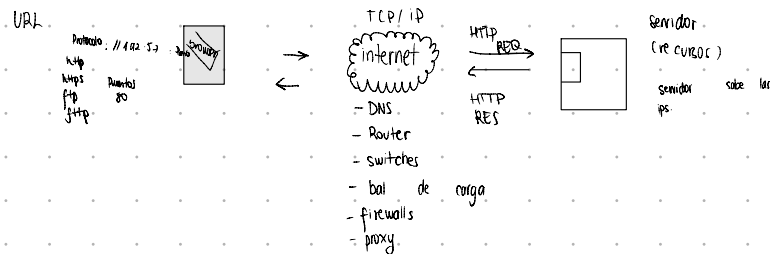 URL
Protocolo : // 192.5.7
http
https
ftp
fttp
Puertos
80
TCP/iP
internet
- DNS
- Router
- switches
- bal de carga
- firewalls
- proxy
HTTP
REQ
HTTP
RES
servidor
(recursos)
servidor sabe las
ips.